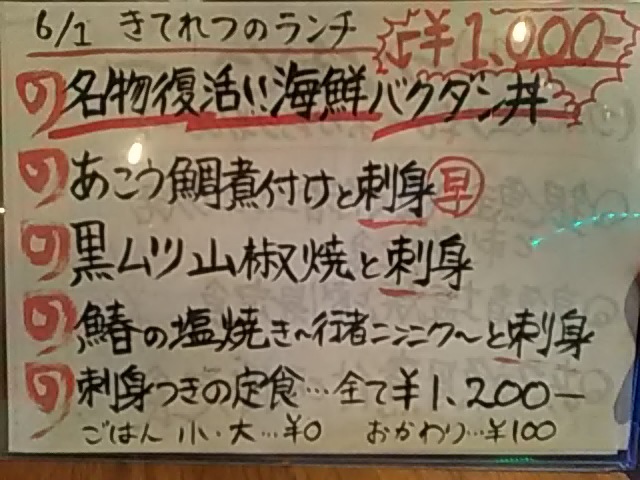 6/1 きてれつのランチ
¥1,000-
の 名物復活!!海鮮バクダン丼
の あこう鯛煮付けと刺身 早
の 黒ムツ山椒焼と刺身
の 鰆の塩焼き~行者ニンニク~と刺身
の 刺身つきの定食…全て¥1,200-
ごはん 小・大…¥0 おかわり…¥100